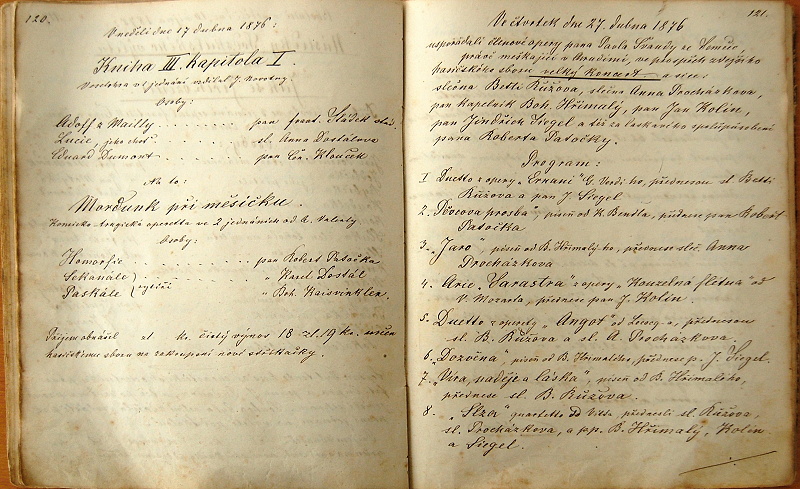 120.
V neděli dne 17 dubna 1876:
Kniha III. kapitola I.
Veselohra v 1 jednání vzdělal J. Novotný.
Osoby:
Adolf z Mailly . . . . . . pan Frant. Sládek
Lucie, jeho choť . . . . . . sl. Anna Dostálova
Eduard Dumont . . . . . . pan Čen. Klouček
Na to:
Mordunk při měsíčku.
Komicko tragická operetta ve 2 jednáních od
Osoby:
pan Robert Patočka
" Karel Dostál
Paskále
" Boh. Kaisvinkler.
Příjem obnášel zl. kr. čistý výnos 18 zl. 19 kr. určen
hasičskému sboru na zakoupení nové stříkačky.
121.
Ve čtvrtek dne 27. dubna 1876
uspořádali členové opery pana Pavla Švandy ze Semčic,
právě meškající v Chrudimi, ve prospěch zdejšího
hasičského sboru velký koncert a sice:
slečna Betti Růžova, slečna Anna Procházkova,
pan kapelník Boh. Hřimalý, pan Jan Kolín,
pan Jindřich Siegel a též za laskavého spolupůsobení
pana Roberta Patočky.
Program:
1 Duetto z opery „Ernani" G. Verdiho, přednesou sl. Betti
Růžova a pan J. Siegel
2. prosba" píseň od K. Bendla, přednese pan Robert
Patočka
3. „Jaro", píseň od B. Hřimalýho, přednese sleč. Anna
Procházkova
4. Arie „Sarastra" z opery „Kouzelná flétna" od
V. Mozarta, přednese pan J. Kolín.
5. Duetto z operety „Angot" od Lecoq-a, přednesou
sl. B. Růžova a sl. A. Procházkova.
6. píseň od B. Hřimalého, přednese p. J. Siegel.
7. „Víra, naděje a láska", píseň od B. Hřimalého,
přednese sl. B. Růžova.
8. „Slza" quartetto od přednesli sl. Růžova,
sl. Procházkova, a pp. B. Hřimalý, Kolín
a Siegel.